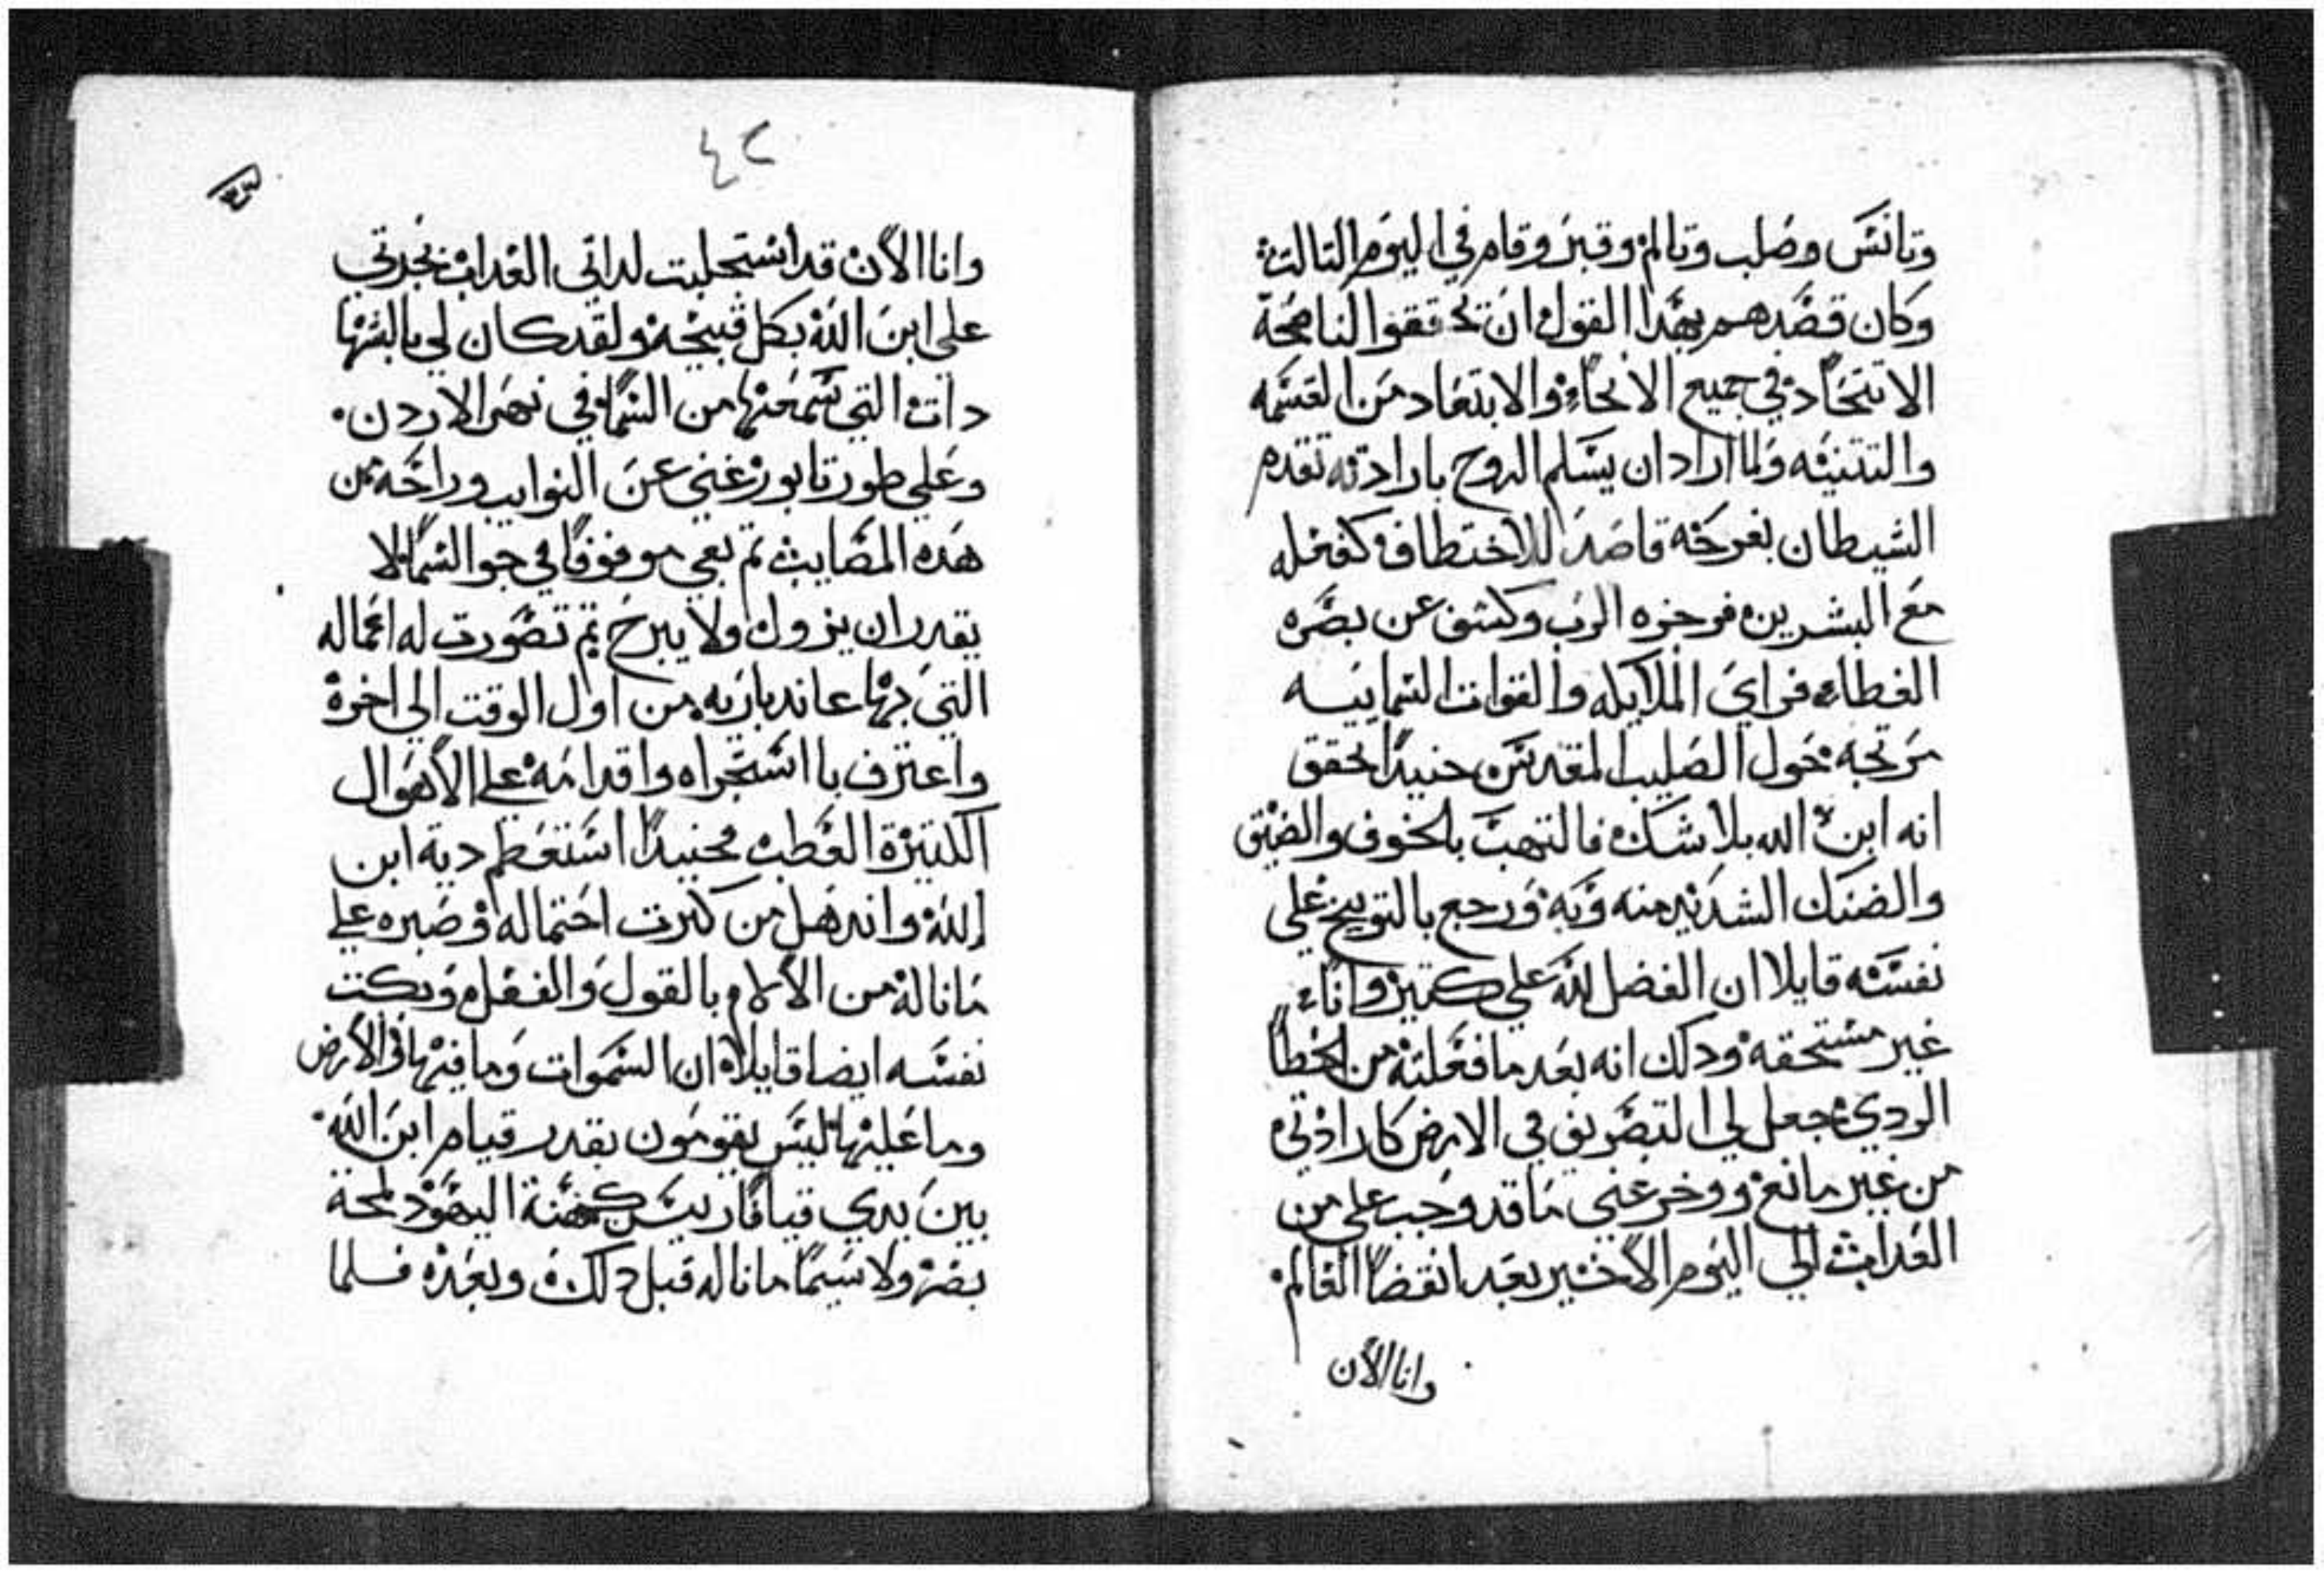 وتانس وصلب وتالم وقبر وقام في اليوم التالت
وكان قصدهم بهدا القول ان تحققوا الناصحة
الاتحاد في جميع الانحاء والابتعاد من القسمه
والتتنيه ولما اراد ان يسلم الروح بارادته تقدم
الشيطان بفرحة قاصد للاختطاف كفعله
مع البشرين فزخره الرب وكشف عن بصره
الغطاء فراي الملايكه والقوات السماييه
مرتجه حول الصليب المقدس حنيدا تحقق
انه ابن الله بلا شك فالتهب بالخوف والضيق
والضنك الشديد منه وبه ورجع بالتوبيخ علي
نفسه قايلا ان الفضل لله علي كتير وانا
غير مستحقه ودلك انه بعد ما فعلته من الخطا
الردي جعل لي التصريف في الارض كارادتي
من غير مانع ووخر عني ما قد وجب علي من
العداب الي اليوم الاخير بعد انقضا العالم
وانا الان
٤٢
٤٣
وانا الان قد استحليت لداتي العداب بجرتي
علي ابن الله بكل قبيحة ولقد كان لي بالبشرها
دات التي سمعتها من السما في نهر الاردن
وعلي طور تابور غني عن النوايب وراحة من
هده المصايب تم بقي موقوفا في جو السما لا
يقدر ان يزول ولا يبرح تم تصورت له اعماله
التي بها عاند باريه من اول الوقت الي اخره
واعترف باستجراه واقدامه علي الاهوال
الكتيرة العظبه محنيدا استعظم دية ابن
الله واندهل من كترت احتماله وصبره علي
ما ناله من الالام بالقول والفعل وبكت
نفسه ايضا قايلا ان السموات وما فيها والارض
وما عليها ليس يقومون بقدر قيام ابن الله
بين يدي قيافا ريس كهنة اليهود لمحة
بصر ولا سيما ما ناله قبل دلك وبعده فلما